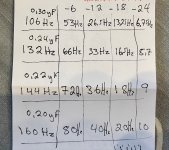 0,30µF -6 -12 -18 -24
106Hz 53Hz 26.5Hz
0,24µF
132Hz 66Hz 33Hz
0,22µF
144Hz 72Hz 36Hz 18Hz 9
0,20µF
160Hz 80Hz 40Hz 20Hz 10